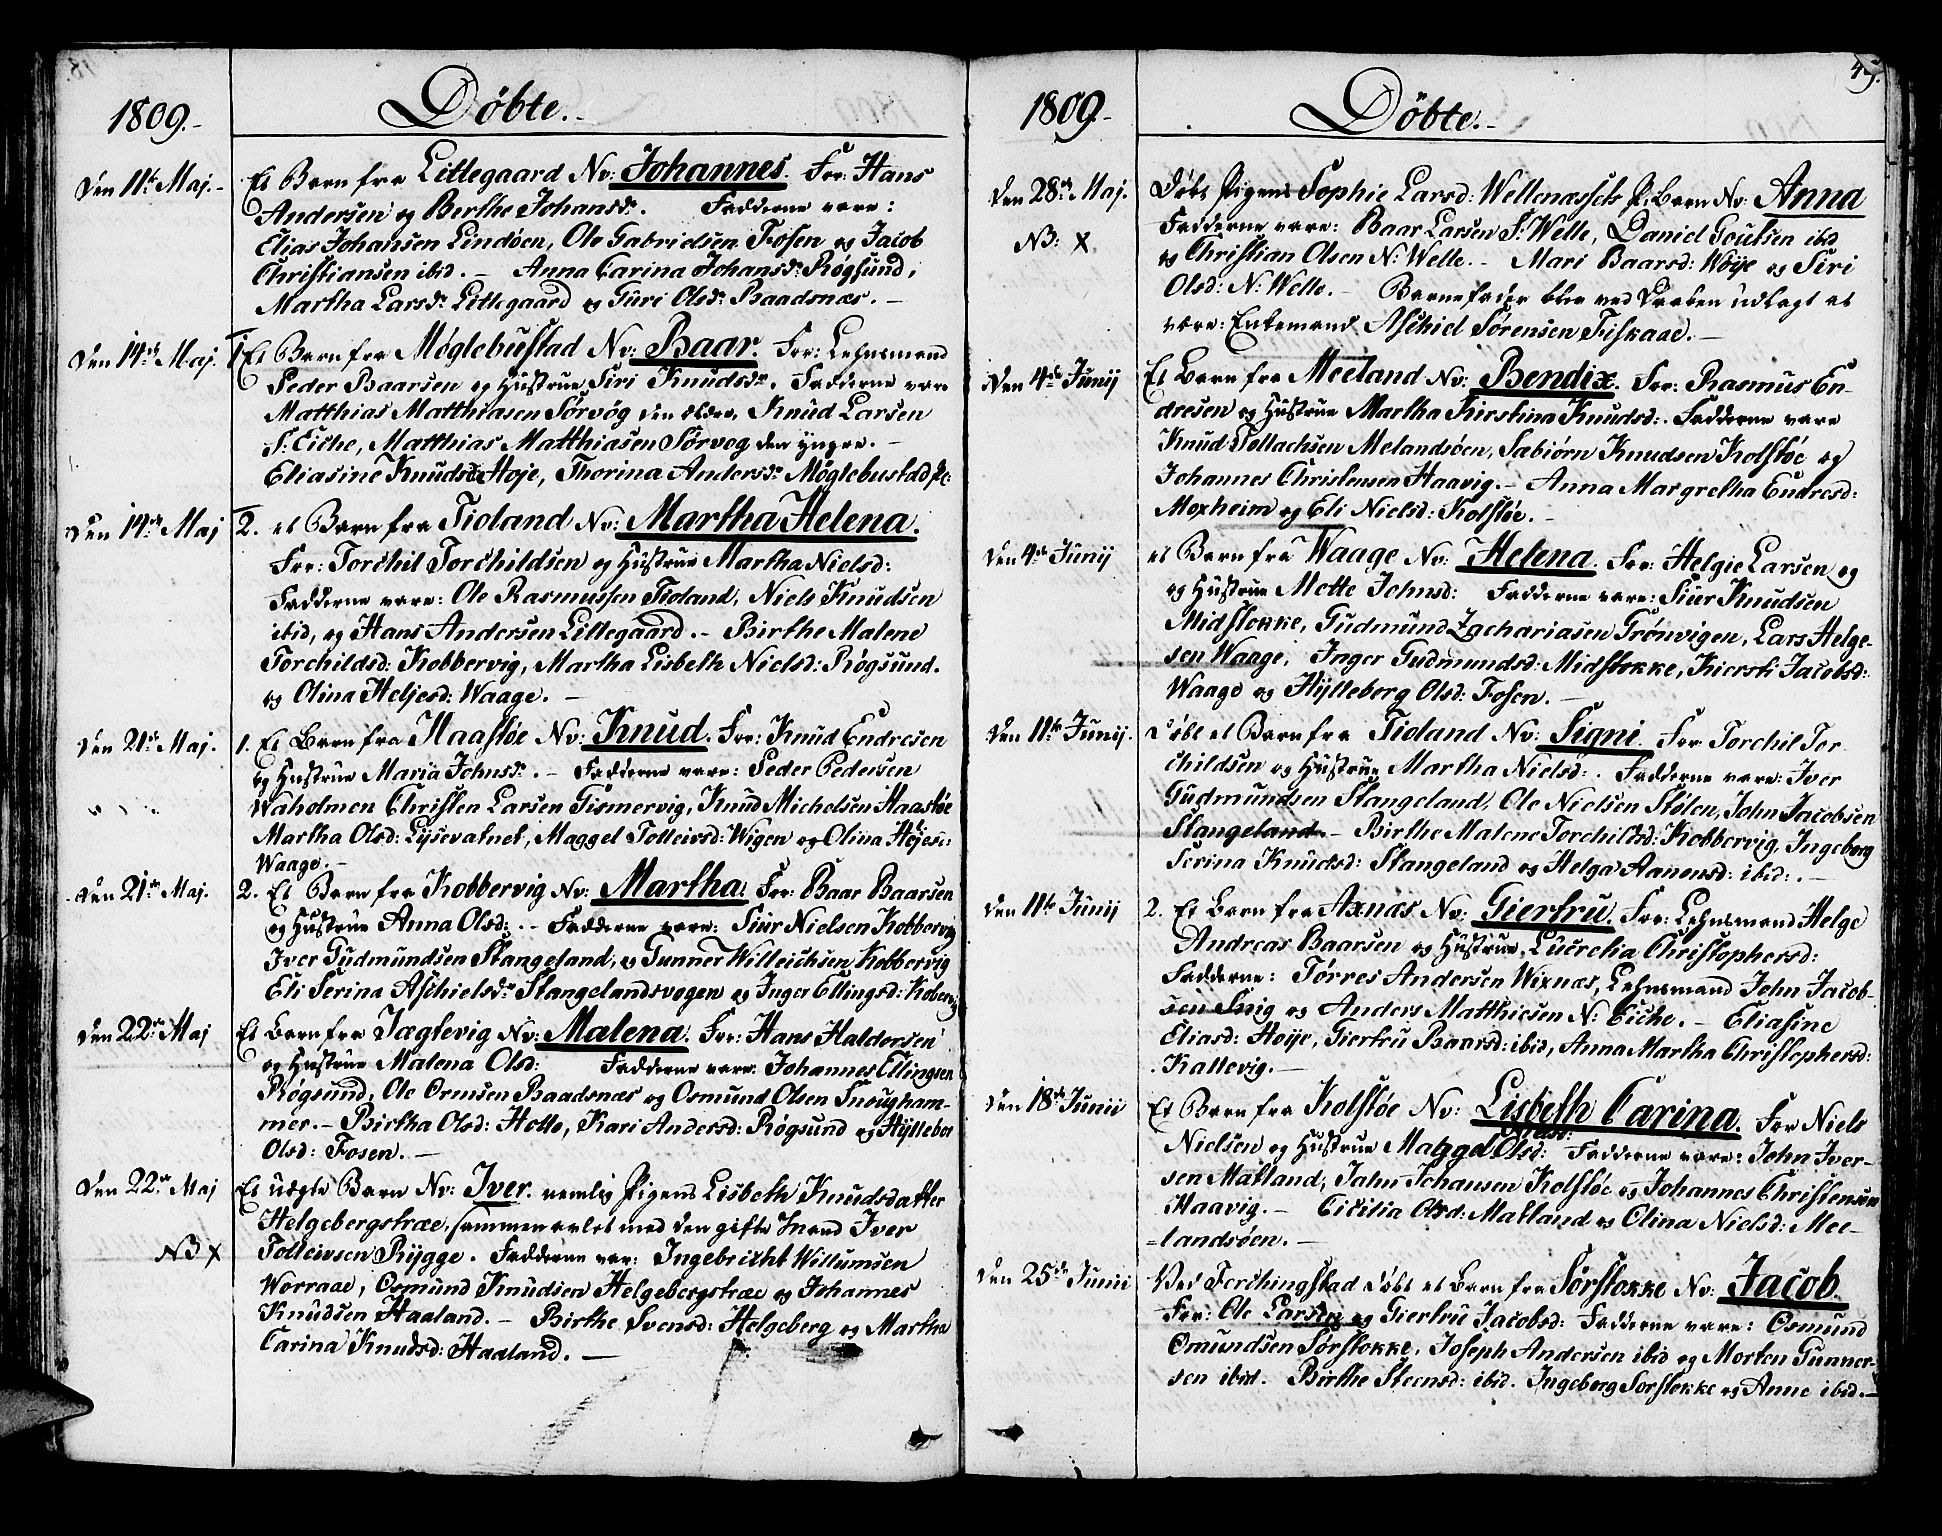 1809.-
Döbte.-
Den 11te Maj.- Et Barn fra Littegaard Nv: Johannes. For: Hans
Andersen og Berthe Johansdr. Fadderne vare:
Elias Johansen Lindöen, Ole Gabrielsen Fosen og Jacob
Christiansen ibid. - Anna Carina Johansdr: Rögsund,
Martha Larsdr Littegaard og Guri Olsdr Baadsnæs. -
Den 14de Maj. 1. Et Barn fra Möglebustad Nv: Baar. For: Lehnsmand
Peder Baarsen og Hustrue Siri Knudsdr. Fadderne vare
Matthias Matthiasen Sørvög den ældre, Knud Larsen
S: Eiche, Matthias Matthiasen Sørvog den yngre. -
Eliasine Knudsdr Høje, Thorina Andersdr Möglebustad pl:
Den 14de Maj 2. et Barn fra Tioland Nv: Martha Helena.
For: Torchil Torchildsen og Hustrue Martha Nielsd:
Fadderne vare: Ole Rasmussen Tioland, Niels Knudsen
ibid, og Hans Andersen Littegaard. - Birthe Malene
Torchildsd: Kobbervig, Martha Lisbeth Nielsd: Rögsund.
og Olina Heljesd: Waage. -
Den 21de Maj. 1. Et Barn fra Haastöe Nv: Knud. For: Knud Endresen
og Hustrue Maria Johnsdr. - Fadderne vare: Peder Pedersen
Waholmen Christen Larsen Gismervig, Knud Michelsen Haastöe
Martha Olsd: Lysevatnet, Maggel Tolleivsd: Wigen og Olina Höjesd:
Waage. -
Den 21de Maj. 2. Et Barn fra Kobbervig Nv: Martha. For: Baar Baarsen
og Hustrue Anna Olsd: - Fadderne vare: Siur Nielsen Kobbervig
Iver Gudmundsen Stangeland, og Gunner Willeichsen Kobbervig
Eli Serina Aschielsdr Stangelandsvogen og Inger Ellingsd: Kobervig
Den 22de Maj Et Barn fra Væglevig Nv: Malena. For: Hans Haldorsen
og Hustrue Malena Olsd: Fadderne vare: Johannes Ellingsen
Rögsund, Ole Ormsen Baadsnæs og Osmund Olsen Snoughammer. -
mer. - Birtha Olsd: Hotte, Kari Andersd: Rögsund og Hylleber
Olsd: Fosen. -
Den 22de Maj Et uægte Barn Nv: Iver. nemlig Pigens Lisbeth Knudsdatter
Helgebergstræe, sammenavlet med den gifte Mand Iver
NB X Tolleivsen Rygge. Fadderne var: Ingebricht Willumsen
Worraae, Osmund Knudsen Helgebergstræe og Johannes
Knudsen Haaland. - Birthe Svensd: Helgeberg og Martha
Carina Knudsd: Haaland. -
45.
1809.-
Döbte.-
Den 28de Maj. Döbt Pigens Sophie Larsd: Wellenæssets Pl: Barn Nv: Anna
NB: X Fadderne vare: Baar Larsen S: Welle, Daniel Goutsen ibid
og Christian Olsen N: Welle. - Mari Baarsd: Wöje og Siri
Olsd: N: Welle. - Barnefader blev ved Daaben udlagt at
være: Enkemand Aschiel Sørensen Fiskaae. -
Den 4de Junij Et Barn fra Meeland Nv: Bendix. For: Rasmus En-
dresen og Hustrue Martha Kirstina Knudsd: . Fadderne vare
Knud Tollachsen Melandsöen, Sabiørn Knudsen Kolstöe og
Johannes Christensen Haavig. - Anna Margretha Endresd:
Moxheim og Eli Nielsd: Kolstöe. -
Den 4de Junij et Barn fra Waage Nv: Helena. For: Helgie Larsen og
og Hustrue Mette Johnsd: Fadderne vare: Siur Knudsen
Midstokke, Gudmund Zachariasen Grönvigen, Lars Helge-
sen Waage, Inger Gudmundsd: Midstokke, Kiersti Jacobsd:
Waage og Hylleborg Olsd: Fosen. -
Den 11te Junij. Döbt et Barn fra Tioland Nv: Signi. For Torchil Tor-
childsen og Hustrue Martha Nielsd: . Fadderne vare: Iver
Gudmundsen Stangeland, Ole Nielsen Stølen, John Jacobsen
Stangeland. - Birthe Malene Torchildsd: Kobbervig, Ingeborg
Serina Knudsd: Stangeland og Helga Aanensd: ibid: . -
Den 11te Junij 2. Et Barn fra Axnæs Nv: Giertru. For: Lehnsmand Helge
Andreas Baarsen og Hustrue Lucrelia Christophersd:
Fadderne: Törres Andersen Wixnæs, Lehnsmand John Jacob-
sen Snig og Anders Matthiesen N: Eiche. - Eliasine
Eliasd: Høije, Giertru Baarsd: ibid, Anna Martha Christophersd:
Kallevig. -
Den 18de Junii Et Barn fra Kolstöe Nv: Lisbeth Carina. For Niels
Nielsen og Hustrue Maggel Olsd: Fadderne vare: John Iver-
sen Matland, Jahn Johansen Kolstöe og Johannes Christensen
Haavig. - Cicilia Olsd: Matland og Olina Nielsd: Mee-
=landsöen. -
Den 25de Junii Ved Ferchingstad döbt et Barn fra Sørstokke Nv: Jacob.
For: Ole Larsen og Giertru Jacobsd: Fadderne vare: Osmund
Omundsen Sørstokke, Joseph Andersen ibid og Morten Gunner-
sen ibid. Birthe Steensd: ibid. Ingeborg Sorstokke og Anne ibid. -